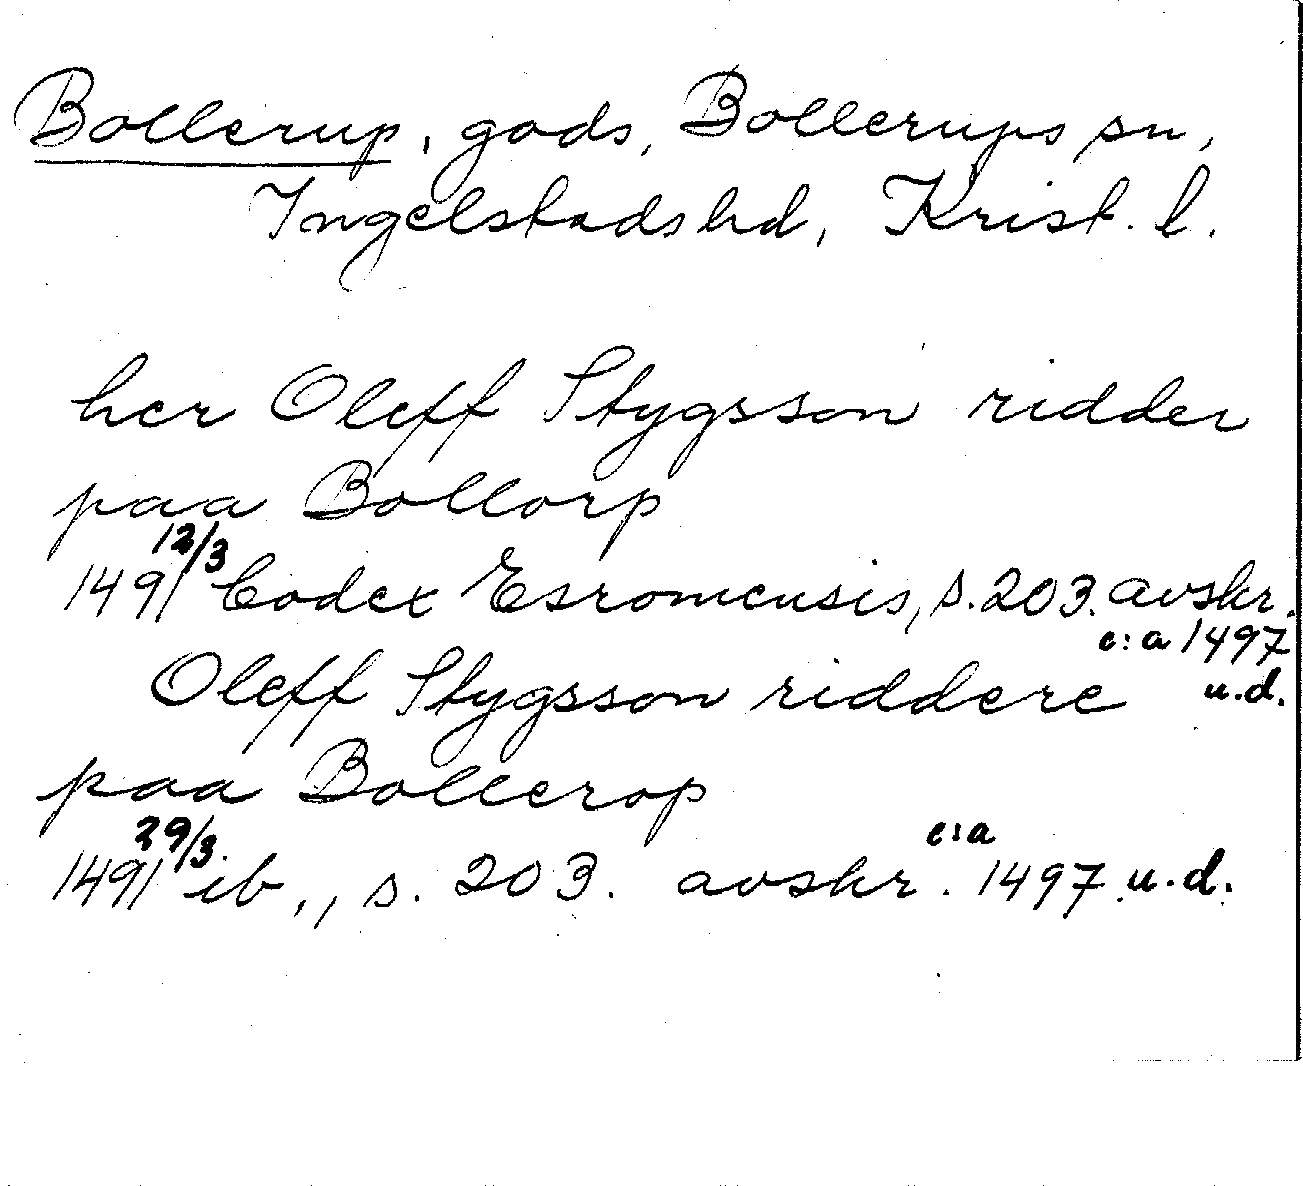 Bollerup, gods, Bollerups sn,
Ingelstads hd, Krist. l.
her Oleff Stygsson ridder
paa Bollorp
1491 12/3 Codex Esromensis, s. 203. avskr.
c:a 1497
u.d.
Oleff Stygsson riddere
paa Bollerop
1491 29/3. ib., s. 203. avskr. c:a 1497 u.d.